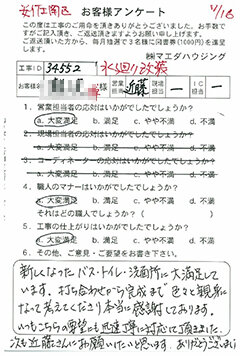 安佐南区 お客様アンケート 4/18
この度は工事のご用命を頂きありがとうございました。お手数で
すがご記入頂き、ご返送頂きますようお願い申し上げます。
ご返送頂いた方から、毎月抽選で3名様に図書券(1000円)を進呈
㈱マエダハウジング
工事ID 34552 水廻り改装
お客様名 様 営業担当 近藤 現場担当 ー IC担当 ー
1. 営業担当者の応対はいかがでしたでしょうか?
a. 大変満足 b. 満足 c. やや不満 d. 不満
2. 現場担当者の応対はいかがでしたでしょうか?
a. 大変満足 b. 満足 c. やや不満 d. 不満
3. コーディネーターの応対はいかがでしたでしょうか?
a. 大変満足 b. 満足 c. やや不満 d. 不満
4. 職人のマナーはいかがでしたでしょうか?
a. 大変満足 b. 満足 c. やや不満 d. 不満
それはどの職人でしょうか?( )
5. 工事の仕上がりはいかがでしたでしょうか?
a. 大変満足 b. 満足 c. やや不満 d. 不満
6. その他、ご意見・ご要望をお書き下さい。
新しくなったバス・トイレ・洗面所に大満足して
います。打ち合わせから完成まで色々と親身に
なって考えてくださり本当に感謝しております。
いつもこちらの要望にも迅速丁寧に対応して頂きました。
次も近藤さんにお願いしたいと思います。ありがとうございました。